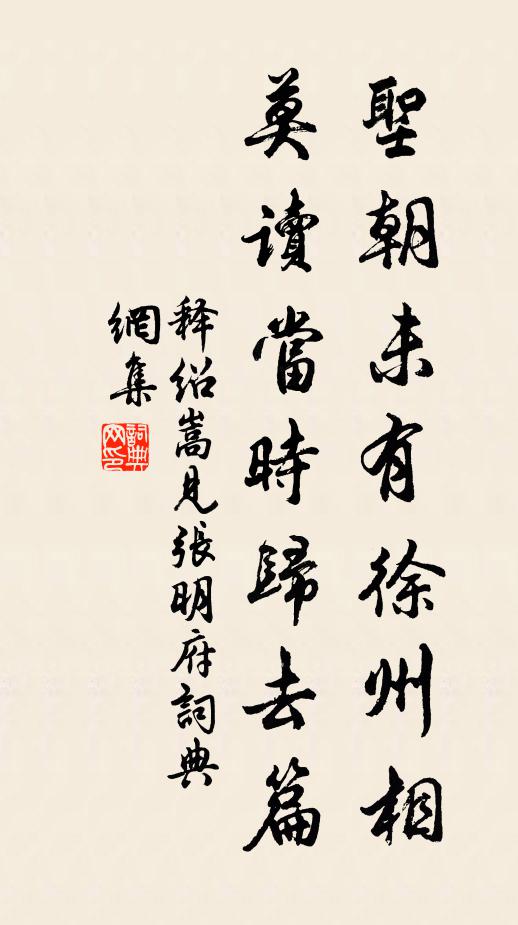 聖朝未有徐州相
莫讀當時歸去篇
释绍嵩見張明府詞典
網集
詞典
网印